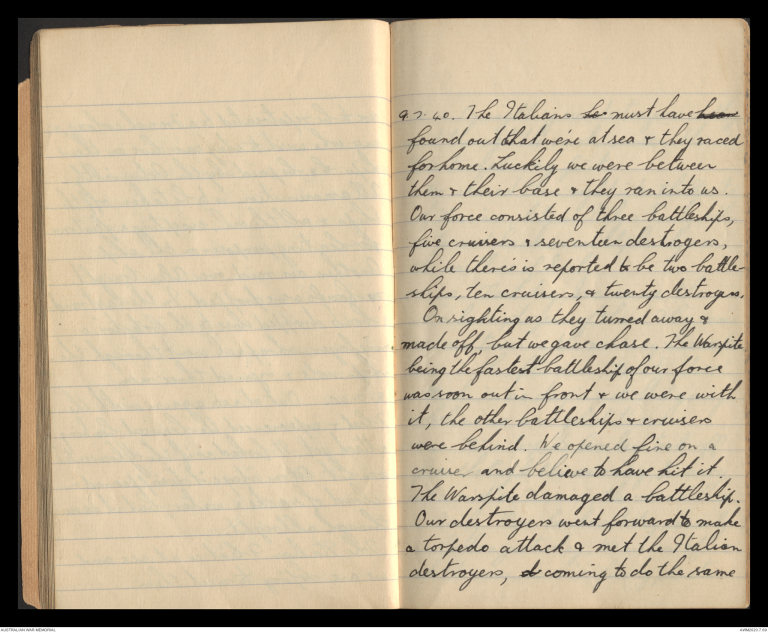 9.7.40. The Italians he must have hear
found out that we're at sea & they raced
for home. Luckily we were between
them & their base & they ran into us.
Our force consisted of three battleships,
five cruisers & seventeen destroyers,
while theirs is reported to be two battle-
ships, ten cruisers, & twenty destroyers.
On sighting us they turned away &
made off, but we gave chase. The Warspite
being the fastest battleship of our force
was soon out in front & we were with
it, the other battleships & cruisers
were behind. We opened fire on a
cruiser and believe to have hit it.
The Warspite damaged a battleship.
Our destroyers went forward to make
a torpedo attack & met the Italian
destroyers, coming to do the same
AUSTRALIAN WAR MEMORIAL